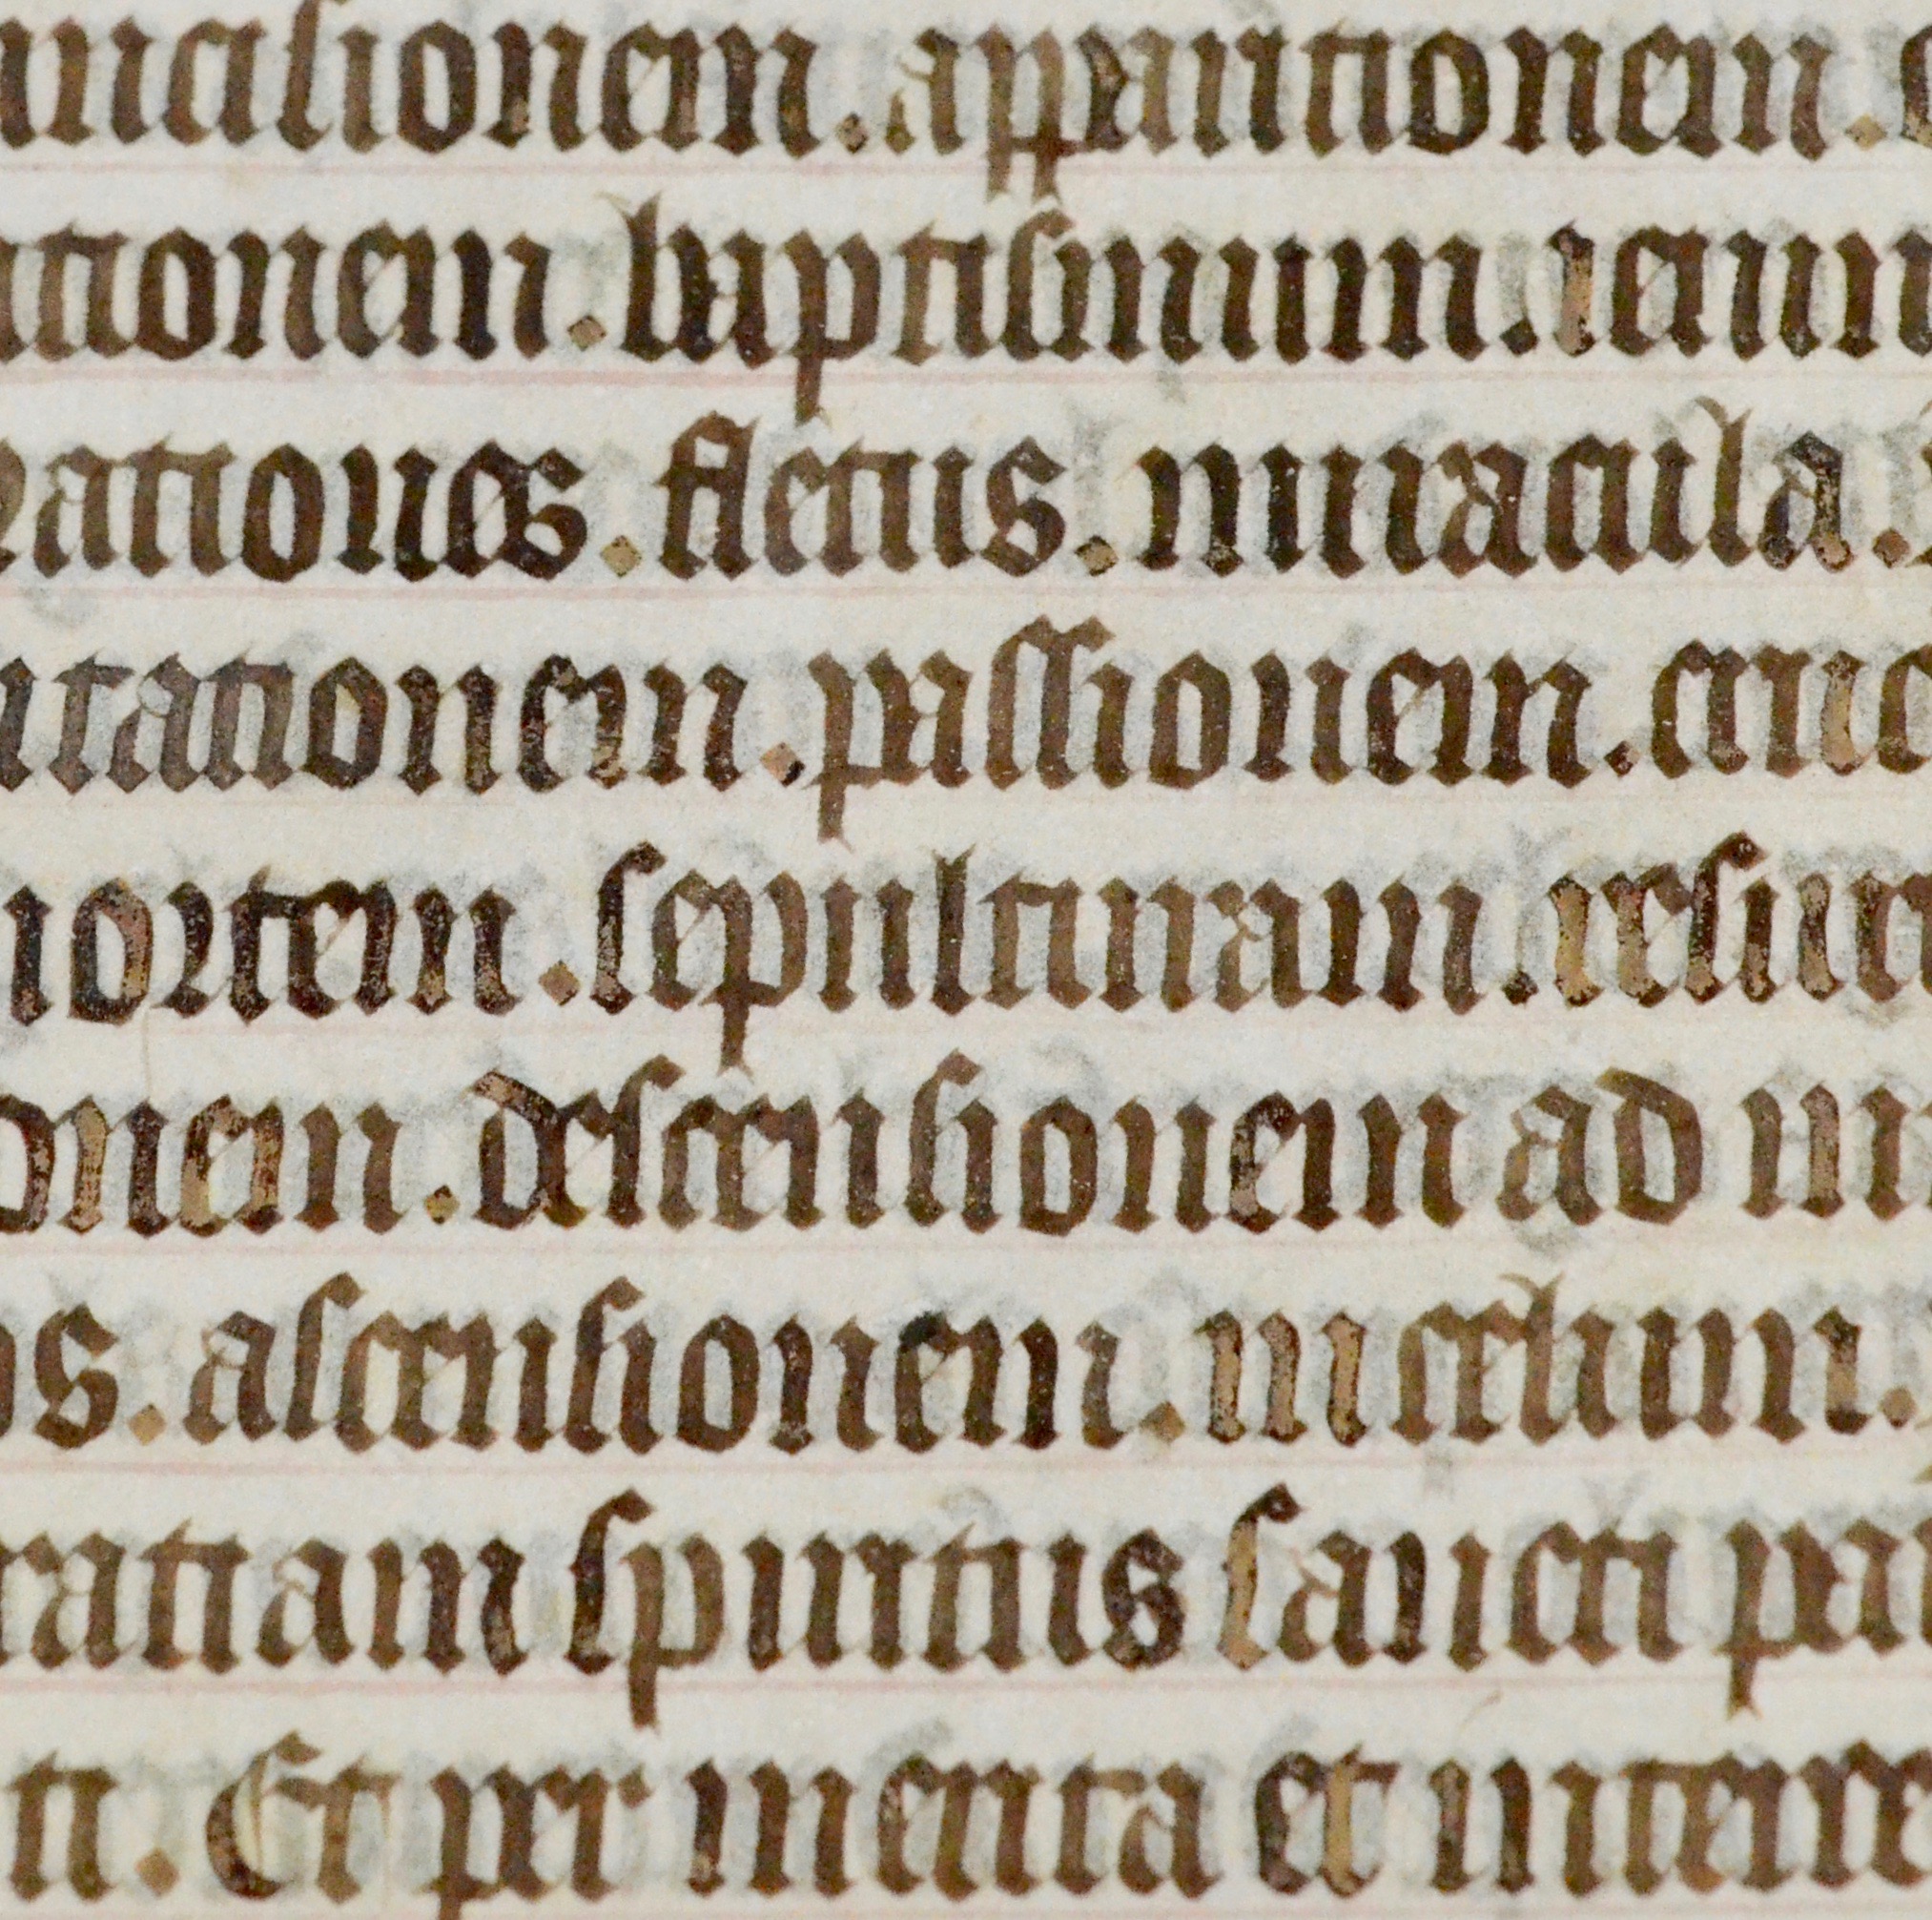 mcisionem. apparitionem.
tionem. baptismum. ieiuni
rationes. fletus. miracula.
tationem. passionem. cruc
ortem. sepulturam. resurr
onem. descensionem ad in
os. ascensionem. in celum.
ratiam spiritus sancti pa
ti. Et per merita et interc